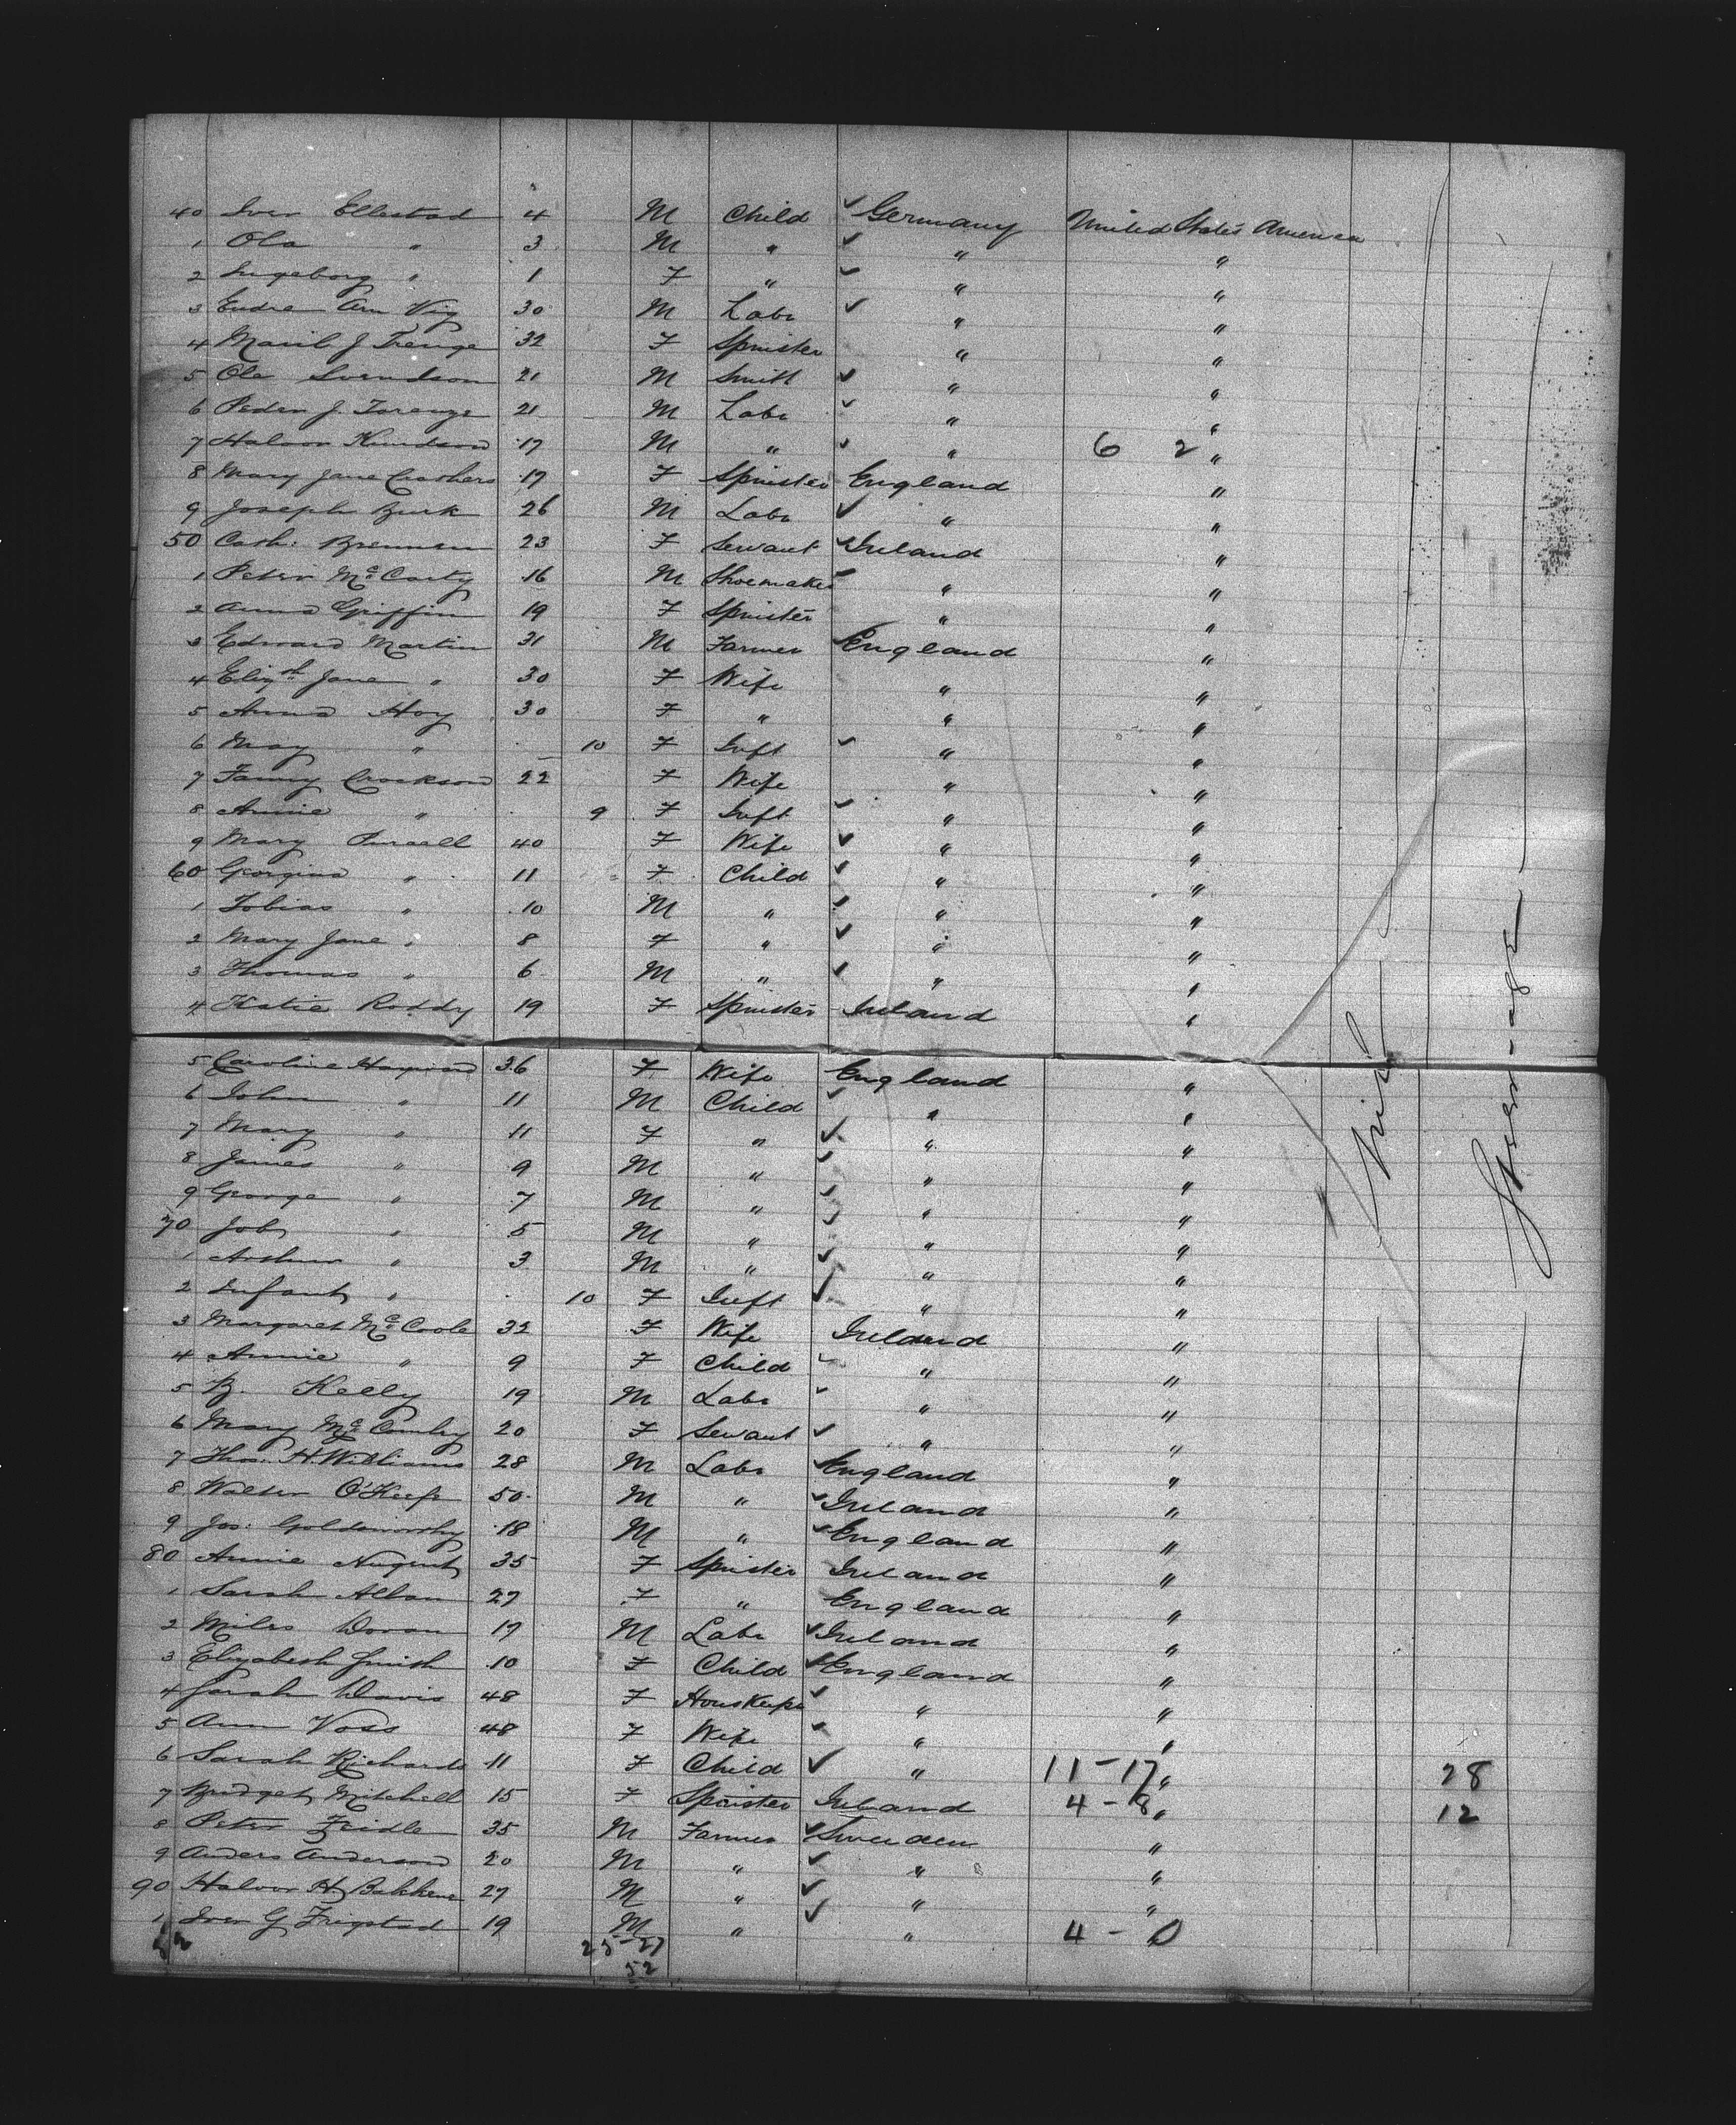 40 Iver Ellestad 4 M Child Germany United States America
1 Ola " 3 M " " "
2 Ingeborg " 1 F " " "
3 Endre Vig 30 M Labr " "
4 32 F Spinster " "
5 Ole Svendson 21 M Smith " "
6 Peder J. 21 M Labr " "
7 Halvor Knudson 17 M " " 6 2 "
8 Mary Jane 19 F Spinster England "
9 Joseph Burk 26 M Labr " "
50 Cath: Brennan 23 F Servant Ireland "
1 Peter McCarty 16 M Shoemaker " "
2 Anna Griffin 19 F Spinster " "
3 Edward Martin 31 M Farmer England "
4 Elizth Jane " 30 F Wife " "
5 Anna Hoy 30 F " " "
6 May " 10 F Inft " "
7 Fanny Crookson 22 F Wife " "
8 Annie " 9 F Inft " "
9 Mary Purcell 40 F Wife " "
60 Georgina " 11 F Child " "
1 Tobias " 10 M " " "
2 Mary Jane " 8 F " " "
3 Thomas " 6 M " " "
4 Katie Roddy 19 F Spinster Ireland "
5 Caroline 36 F Wife England "
6 John " 11 M Child " "
7 Mary " 11 F " " "
8 James " 9 M " " "
9 George " 7 M " " "
70 Job " 5 M " " "
1 Arthur " 3 M " " "
2 Infant " 10 F Inft " "
3 Margaret McCoole 32 F Wife Ireland "
4 Annie " 9 F Child " "
5 B. Kelly 19 M Labr " "
6 Mary 20 F Servant " "
7 Thos. H. Williams 28 M Labr England "
8 Walter O'Keefe 50 M " Ireland "
9 Jas: Goldsworthy 18 M " England "
80 Annie Nugent 35 F Spinster Ireland "
1 Sarah Alban 27 F " England "
2 Miles Doran 19 M Labr Ireland "
3 Elizabeth Smith 10 F Child England "
4 Sarah Davis 48 F Houskeepr " "
5 Ann Voss 48 F Wife " "
6 Sarah Richards 11 F Child " 11-17 " 28
7 Bridget Mitchell 15 F Spinster Ireland 4-8 " 12
8 Peter Zeidle 35 M Farmer Sweden "
9 Anders Anderson 20 M " " "
90 Halvor H. Bakkene 27 M " " "
1 Iver G. Frigstad 19 M " " 4-0
25-27
52
52
Nil
Steerage